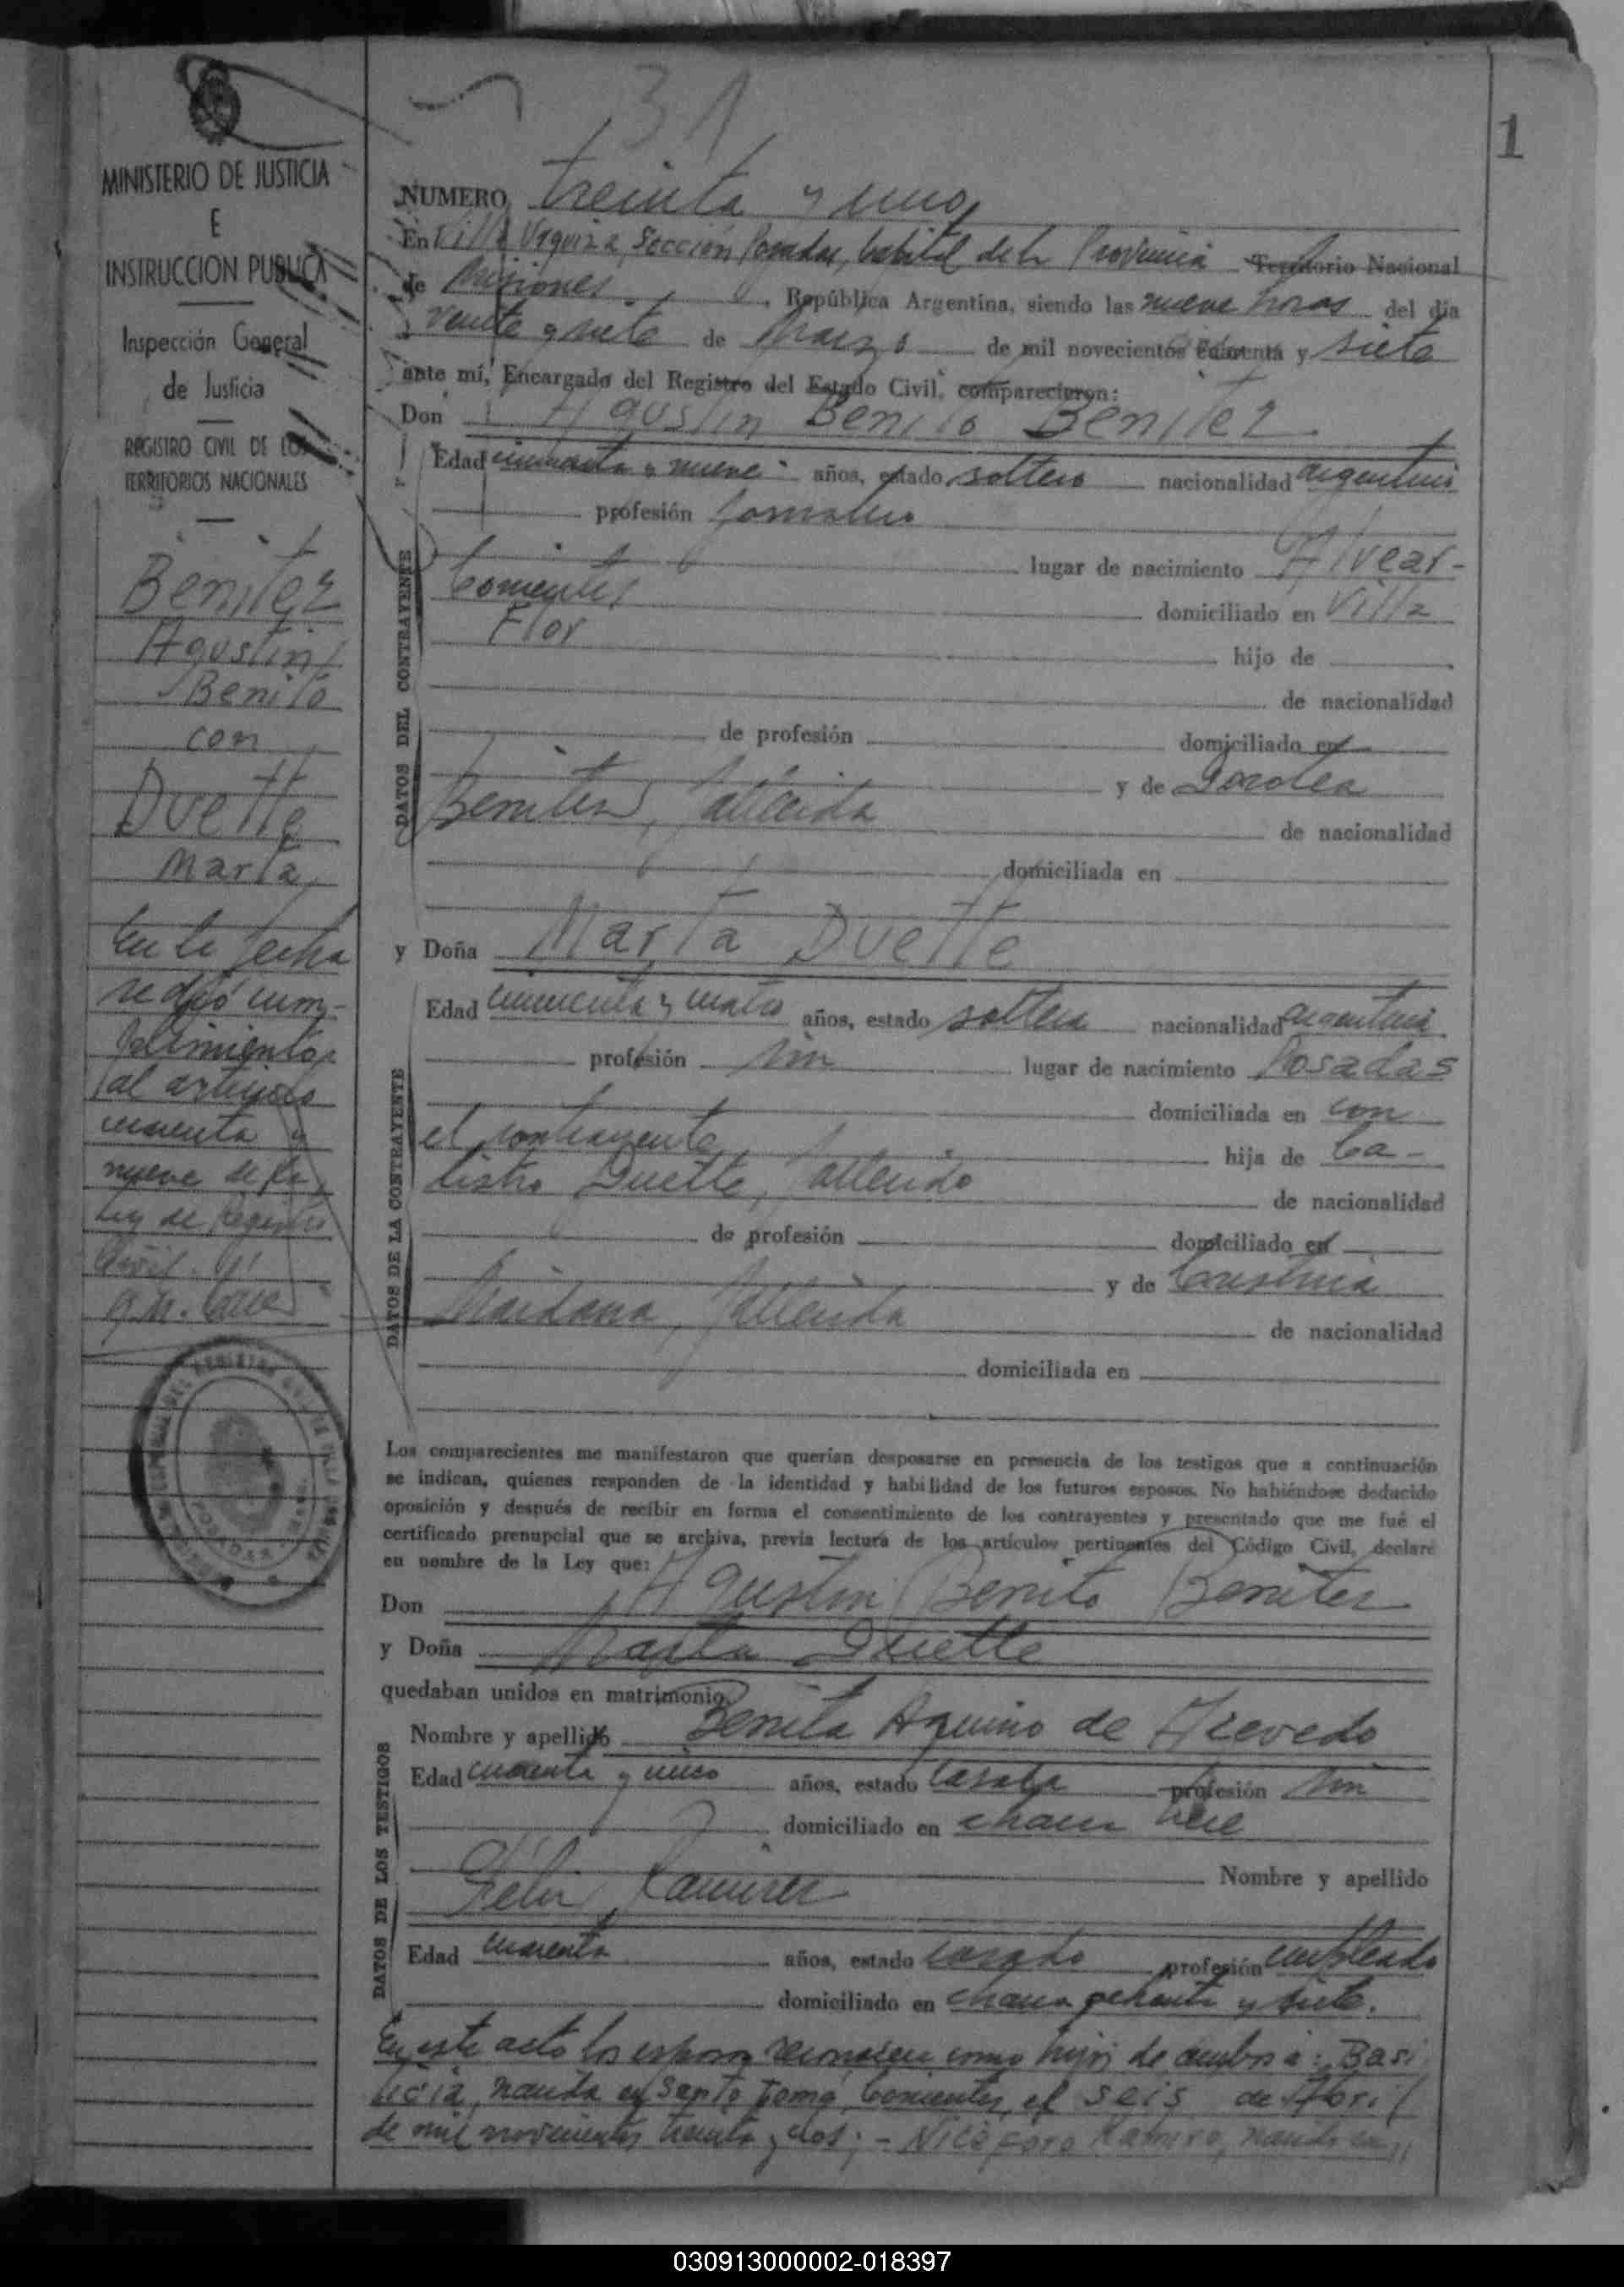 31
1
MINISTERIO DE JUSTICIA
E
INSTRUCCION PUBLICA
Inspección General
de Justicia
REGISTRO CIVIL DE LOS
TERRITORIOS NACIONALES
Benitez
Agustin
Benito
con
Duette
Marta
En la fecha
se dió cum-
plimiento
al artículo
cuarenta y
nueve de la
Ley de Registro
Civil.
NUMERO treinta y uno
En Villa Urquiza, Sección Posadas, Capital de la Provincia Territorio Nacional
de Misiones, República Argentina, siendo las nueve horas del día
veinte y siete de Marzo de mil novecientos cuarenta y siete
ante mí, Encargado del Registro del Estado Civil, comparecieron:
Don Agustin Benito Benitez
DATOS DEL CONTRAYENTE
Edad cincuenta y nueve años, estado soltero nacionalidad argentino
profesión jornalero
lugar de nacimiento Alvear-
Corrientes domiciliado en Villa
Flor hijo de
de nacionalidad
de profesión domiciliado en
y de Dorotea
Benitez, fallecida de nacionalidad
domiciliada en
y Doña Marta Duette
DATOS DE LA CONTRAYENTE
Edad cincuenta y cuatro años, estado soltera nacionalidad argentina
profesión sin lugar de nacimiento Posadas
domiciliada en con
el contrayente hija de Ca-
listro Duette, fallecido de nacionalidad
de profesión domiciliado en
y de Cristina
Maidana, fallecida de nacionalidad
domiciliada en
Los comparecientes me manifestaron que querían desposarse en presencia de los testigos que a continuación
se indican, quienes responden de la identidad y habilidad de los futuros esposos. No habiéndose deducido
oposición y después de recibir en forma el consentimiento de los contrayentes y presentado que me fué el
certificado prenupcial que se archiva, previa lectura de los artículos pertinentes del Código Civil, declaré
en nombre de la Ley que:
Don Agustin Benito Benitez
y Doña Marta Duette
quedaban unidos en matrimonio.
DATOS DE LOS TESTIGOS
Nombre y apellido Benita Aquino de Acevedo
Edad cuarenta y cinco años, estado casada profesión sin
domiciliado en chacra trece
Nombre y apellido
Félix Ramirez
Edad cuarenta años, estado casado profesión empleado
domiciliado en chacra ochenta y siete.
En este acto los esposos reconocen como hijos de ambos a: Basi
licia, nacida en Santo Tomé, Corrientes, el seis de Abril
de mil novecientos treinta y dos; - Nicéforo Ramiro, nacido en
030913000002-018397